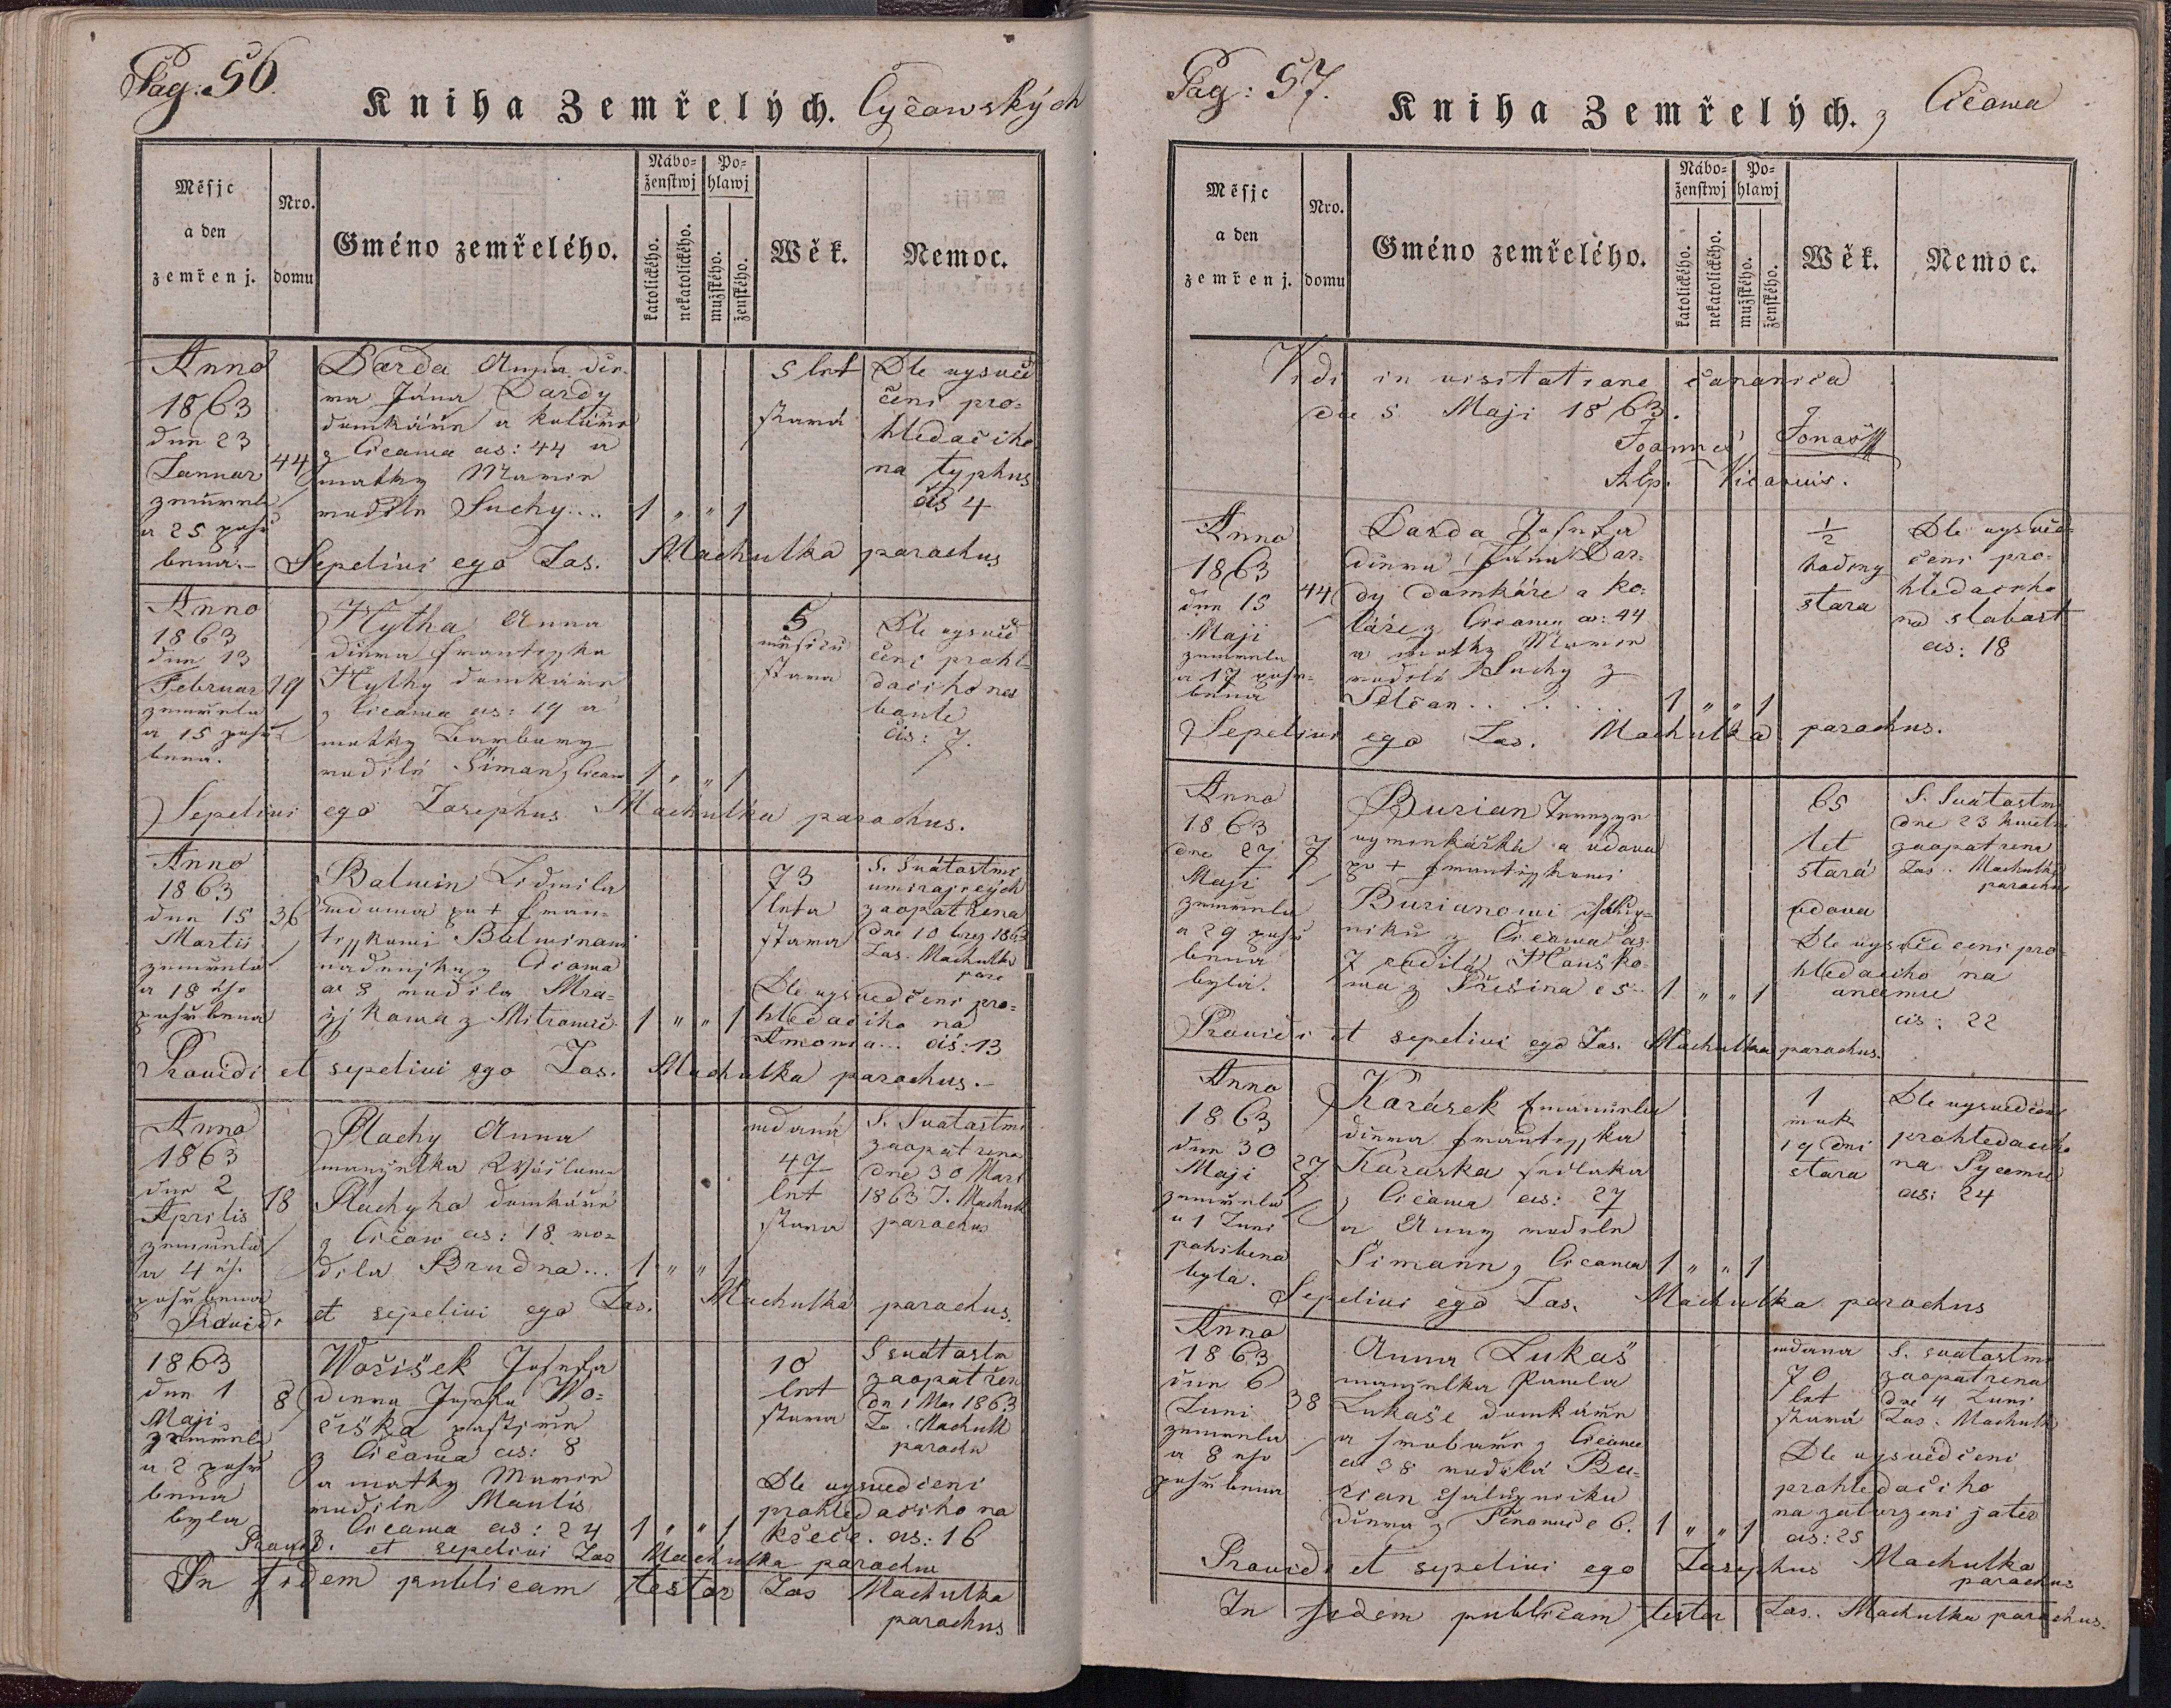 Pag: 56.
Kniha Zemřelých. Čyčowských
Měsjc
a den
zemřenj.
Nro.
domu
Gméno zemřelého.
Nábo=
ženstwj
katolického.
nekatolického.
Po=
hlawj
mužského.
ženského.
Wěk.
Nemoc.
Anno
1863
dne 23
Januar
zemřela
a 25 pohř
bena.
44
Darda Anna dce-
ra Jána Dardy
domkáře a koláře
z Cicawa cis: 44 a
matky Marie
rozdile Suchy....
1 „ „ 1
5 let
stará
Dle vysvěd
čeni pro=
hledačiho
na typhus
čis 4
Sepelivi ego Jos. Machulka parochus
Anno
1863
dne 13
Februar
zemřela
a 15 pohř
bena.
19
Hytha Anna
dcera Frantisska
Hythy domkáře
z Cicawa cis: 19 a
matky Barbory
rodilé Šiman z Cicaw
1 „ „ 1
5
měsíců
stara
Dle vysvěd
čeni prohl-
dacího na
čis: 7.
Sepelivi ego Josephus Machulka parochus.
Anno
1863
dne 15
Martii
zemřela
a 18 ého
pohřbena
36
Balwin Lidmila
wdowa po + Fran-
tisskowi Balwinowi
z Cicawa
cis 8 rodila Mra-
z Mitrowic
1 „ „ 1
73
leta
stara
S. Svátostmi
umirajicých
zaopatřena
dne 10 brez 1863
Jos. Machulka
paro
Dle vysvedčeni pro-
hledaciho na
čis: 13
Providi et sepelivi ego Jos. Machulka parochus.-
Anno
1863
dne 2
Aprilis
zemřela
a 4 ého
pohřbena
18
Plachy Anna
manželka Wáclawa
Plachyho domkáře
z Cičaw cis: 18 ro-
dila Brudna...
1 „ „ 1
wdaná
47
let
stara
S. Svatostmi
zaopatrena
dne 30 Mart
1863 J. Machulk
parochus
Providi et sepelivi ego Jos. Machulka parochus.
1863
dne 1
Maji
zemřela
a 2 pohř
bena
byla
8
Wořišek Josefa
dcera Josefa Wo-
řiška pastýře
z Cičawa cis: 8
a matky Marie
rodile Maulis
z Cicawa cis: 24
1 „ „ 1
10
let
stara
S svátostm
zaopatřen
dn 1 Mai 1863
Jo. Machulk
parochu
Dle vysvedčeni
prohledačiho na
kčeče. cis: 16
Provid. et sepelivi Jos Machulka parochu
In fidem publicam testor Jos Machulka
parochus
Pag: 57.
Kniha Zemřelých. z Cičawa
Měsjc
a den
zemřenj.
Nro.
domu
Gméno zemřelého.
Nábo=
ženstwj
katolického.
nekatolického.
Po=
hlawj
mužského.
ženského.
Wěk.
Nemoc.
Vidi in visitatione canonica
die 5 Maji 1863.
Joannes Jonaš
Alp. Vicarius.
Anno
1863
dne 15
Maji
zemřela
a 17 pohř-
bena
44
Darda Josefa
dcera Jána Dar-
dy domkáře a ko-
láře z Cicawa cis: 44
a matky Marie
rodilé Suchy z
Selčan . . . . . .
1 „ „ 1
½
hodiny
stara
Dle vysvěd-
čeni pro-
hledacího
na slabost
cis: 18
Sepelivi ego Jos. Machulka parochus.
Anno
1863
dne 27
Maji
zemřela
a 29 pohř
bena
byla.
7
Burian
vymenkářka a vdova
po + Frantisskowi
Burianowi
z Cicawa cis
7 rodilá Hauško-
wa z Přišina c 5..
1 „ „ 1
65
let
stará
vdova
S. Svátostmi
dne 23 kwětn
zaopatrena
Jos. Machulka
parochus
Dle vysvědčeni pro-
hledaciho na
cis: 22
Providi et sepelivi ego Jos. Machulka parochus.
Anno
1863
dne 30
Maji
zemřela
a 1 Juni
pohrbena
byla.
27
Karásek Emanuela
dcera Frantisska
Karaska sedlaka
z Cicawa cis: 27
a Anny rodile
Šimann z Cicawa
1 „ „ 1
1
rok
19 dni
stara
Dle vysvedčeni
prohledaciho
na
cis: 24
Sepelivi ego Jos. Machulka parochus
Anno
1863
dne 6
Juni
zemrela
a 8 eho
pohřbena
38
Anna Lukaš
manželka Pawla
Lukaše domkáře
a hrobaře z Cicawa
cis 38 rodilá Bu-
rian
dcera z c 6.
1 „ „ 1
wdana
70
let
stará
S. svatostmi
zaopatrena
dne 4 Juni
Jos. Machulk
Dle vysvědčeni
prohledačiho
na zatwrzeni jater
cis: 25
Providi et sepelivi ego Josephus Machulka
parochus
In fidem publicam testor Jos. Machulka parochus.